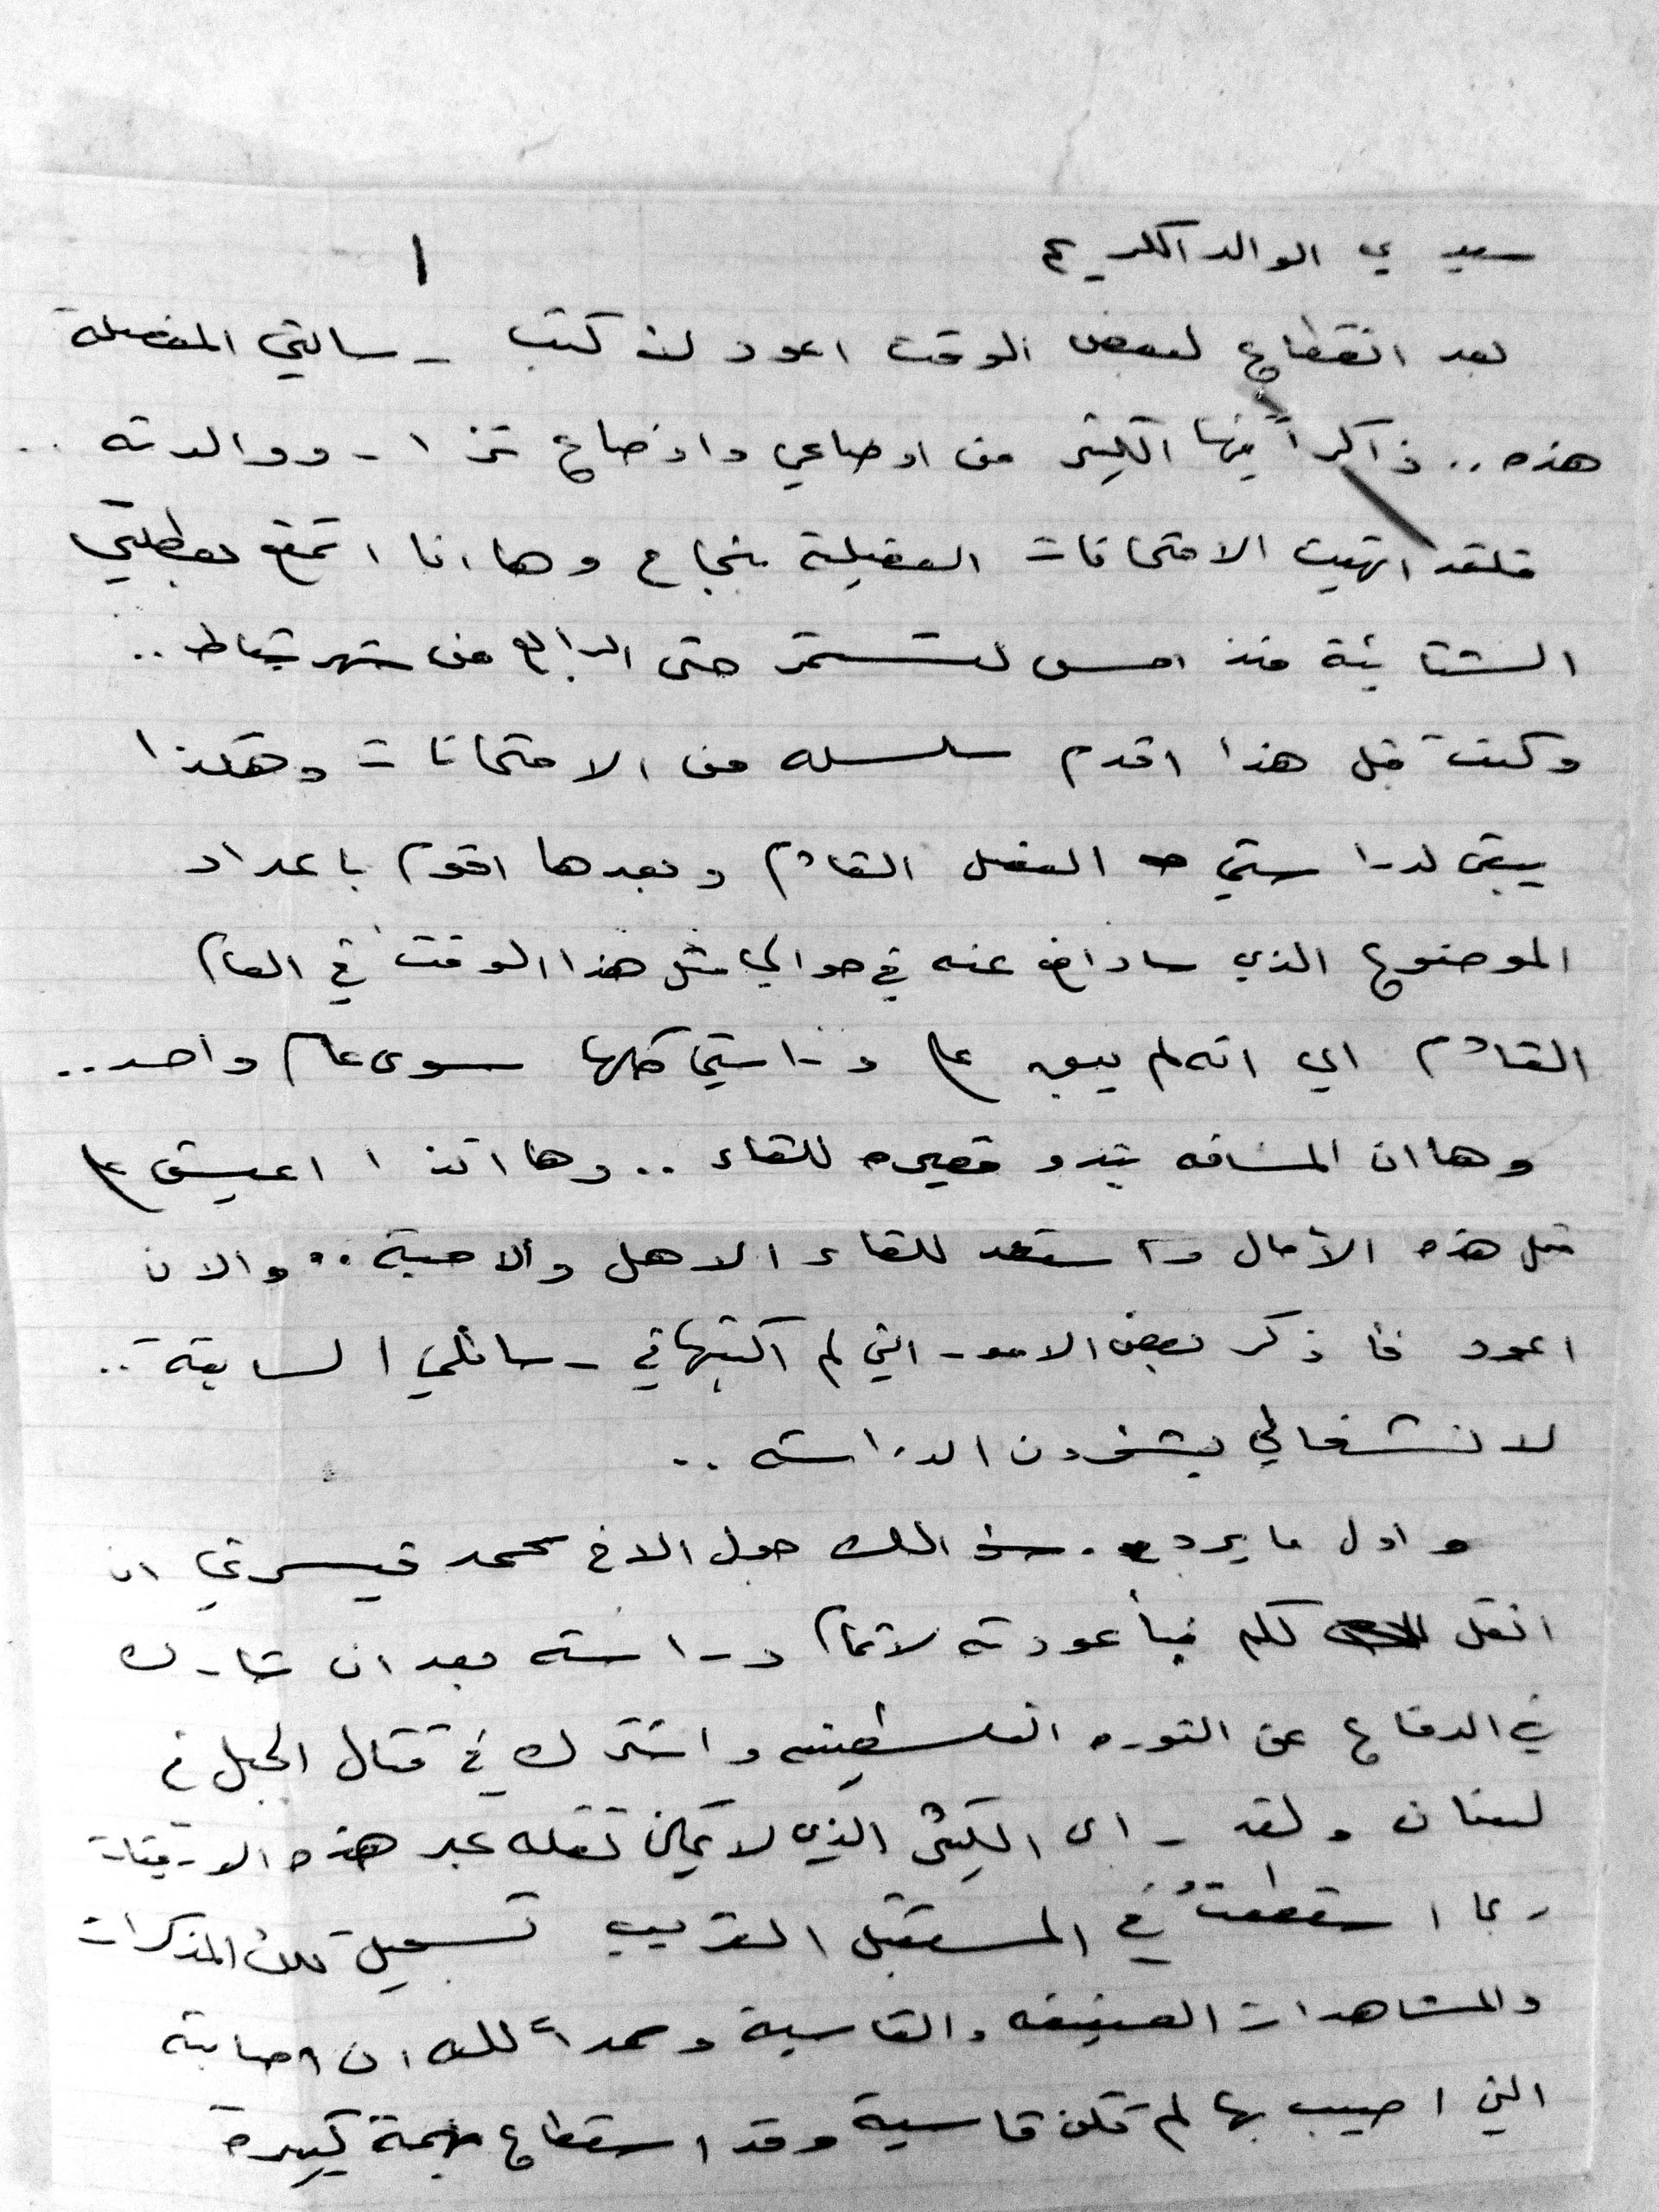 سيدي الوالد الكريم
١
بعد انقطاع لبعض الوقت اعود لاكتب رسالتي المفصلة
هذه .. ذاكراً فيها الكثير من اوضاعي واوضاع نزار ووالدته ..
فلقد انهيت الامتحانات الفصلية بنجاح وها انا اتمتع بعطلتي
الشتائية منذ امس لتستمر حتى الرابع من شهر شباط ..
وكنت قبل هذا اقدم سلسله من الامتحانات وهكذا
يبقى لدراستي الفصل القادم وبعدها اقوم باعداد
الموضوع الذي سادافع عنه في حوالي مثل هذا الوقت في العام
القادم اي انه لم يبق على دراستي كلها سوى عام واحد ..
وها ان المسافه تبدو قصيره للقاء .. وها انذا اعيش على
مثل هذه الآمال واستعد للقاء الاهل والاحبة .. والان
اعود فأذكر بعض الامور التي لم اكتبها في رسائلي السابقة ..
لانشغالي بشؤون الدراسة ..
واول ما يرد سؤالك حول الاخ محمد فيسرني ان
انقل لكم نبأ عودته لاتمام دراسته بعد ان شارك
في الدفاع عن الثوره الفلسطينيه واشترك في قتال الجبل في
لبنان ولقد رأى الكثير الذي لا يمكن نقله عبر هذه الوريقات
ربما استطعتُ في المستقبل القريب تسجيل تلك المذكرات
والمشاهدات العنيفه والقاسية وحمداً لله ان اصابته
التي اصيب بها لم تكن قاسية وقد استطاع بهمة كبيرة